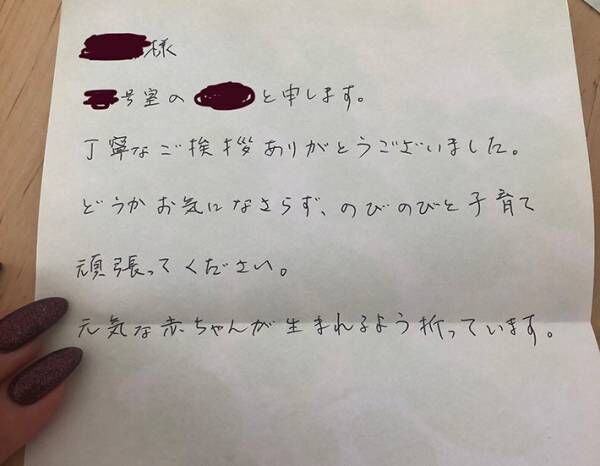 様
号室の と申します。
丁寧なご挨拶ありがとうございました。
どうかお気になさらず、のびのびと子育て
頑張ってください。
元気な赤ちゃんが生まれるよう祈っています。